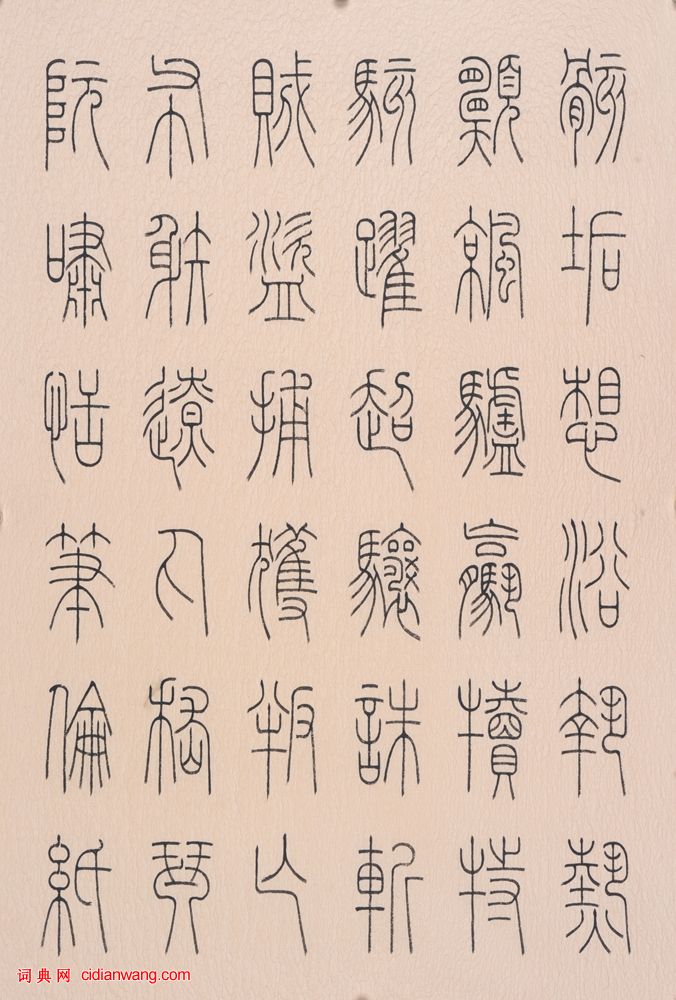 骸垢想浴執熱
願涼驢驘犢特
駭躍超驤誅斬
賊盜捕獲叛亡
布射遼丸嵇琴
阮嘯恬筆倫紙
词典网 cidianwang.com